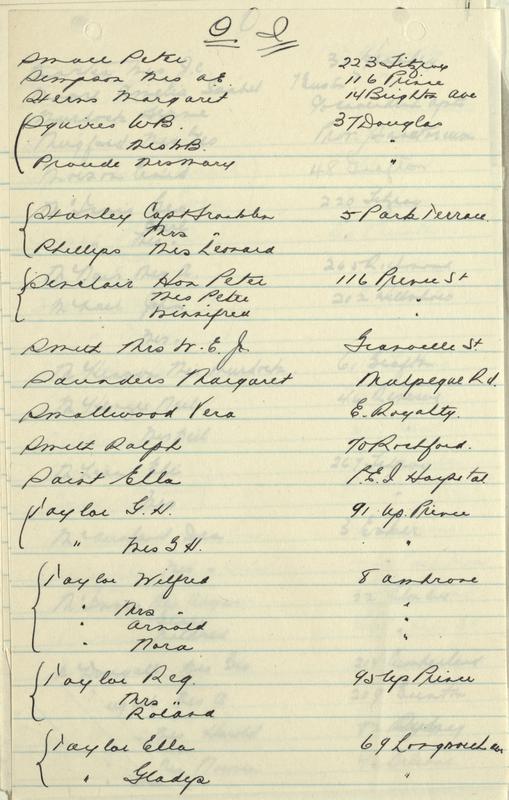 Small Peter 223 Fitzroy
Simpson Mrs A E 116 Prince
Sterns Margaret 14 Brighton Ave
Squires W.B. 37 Douglas
Mrs W.B. "
Proude Mrs Mary "
Stanley Capt Franklin 5 Park Terrace
Mrs "
Phillips Mrs Leonard
Sinclair Hon Peter 116 Prince St
Mrs Peter "
Winnifred "
Smith Mrs W. E. Jr. Granville St
Saunders Margaret Malpeque Rd.
Smallwood Vera E. Royalty.
Smith Ralph 70 Rochford.
Saint Ella P.E.I Hospital
Taylor G.H. 91 Up. Prince
" Mrs G H. "
Taylor Wilfred 8 Ambrose
" Mrs " "
" Arnold "
" Nora "
Taylor Reg 95 Up Prince
Mrs "
Roland
Taylor Ella 69 Longworth Ave
" Gladys "